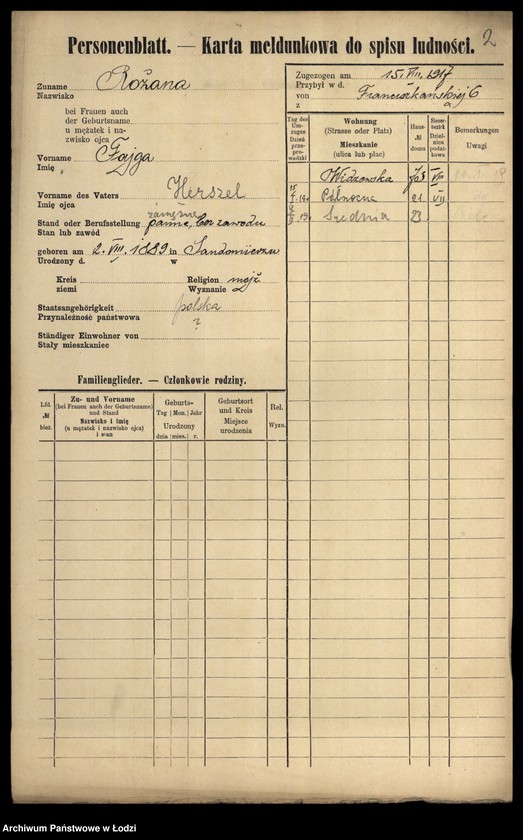 2
Personenblatt. — Karta meldunkowa do spisu ludności.
Zuname Różana
Nazwisko
bei Frauen auch
der Geburtsname
u mężatek i na-
zwisko ojca
Vorname Fajga
Imię
Vorname des Vaters Herszel
Imię ojca
zamężna
Stand oder Berufsstellung panna, bez zawodu
Stan lub zawód
geboren am 2. VIII. 1889 in Sandomierzu
Urodzony d. w
Kreis Religion mojż
ziemi Wyznanie
Staatsangehörigkeit polska
Przynależność państwowa ?
Ständiger Einwohner von
Stały mieszkaniec
Zugezogen am 15. VIII. 1917
Przybył w d.
von Franciszkańskiej 6
z
Tag des Um-zuges Dzień prze-prowadzki
Wohnung (Strasse oder Platz) Mieszkanie (ulica lub plac)
Haus-№ domu
Bemerkungen Uwagi
Widzewska VII
Północna 21 VII
Średnia 23
Familienglieder. — Członkowie rodziny.
Lfd. № bież.
Zu- und Vorname (bei Frauen auch der Geburtsname) und Stand Nazwisko i imię (u mężatek i nazwisko ojca) i stan
Geburts- Tag Mon. Jahr Urodzony dnia mies. r.
Geburtsort und Kreis Miejsce urodzenia
Rel. Wyzn.
Archiwum Państwowe w Łodzi